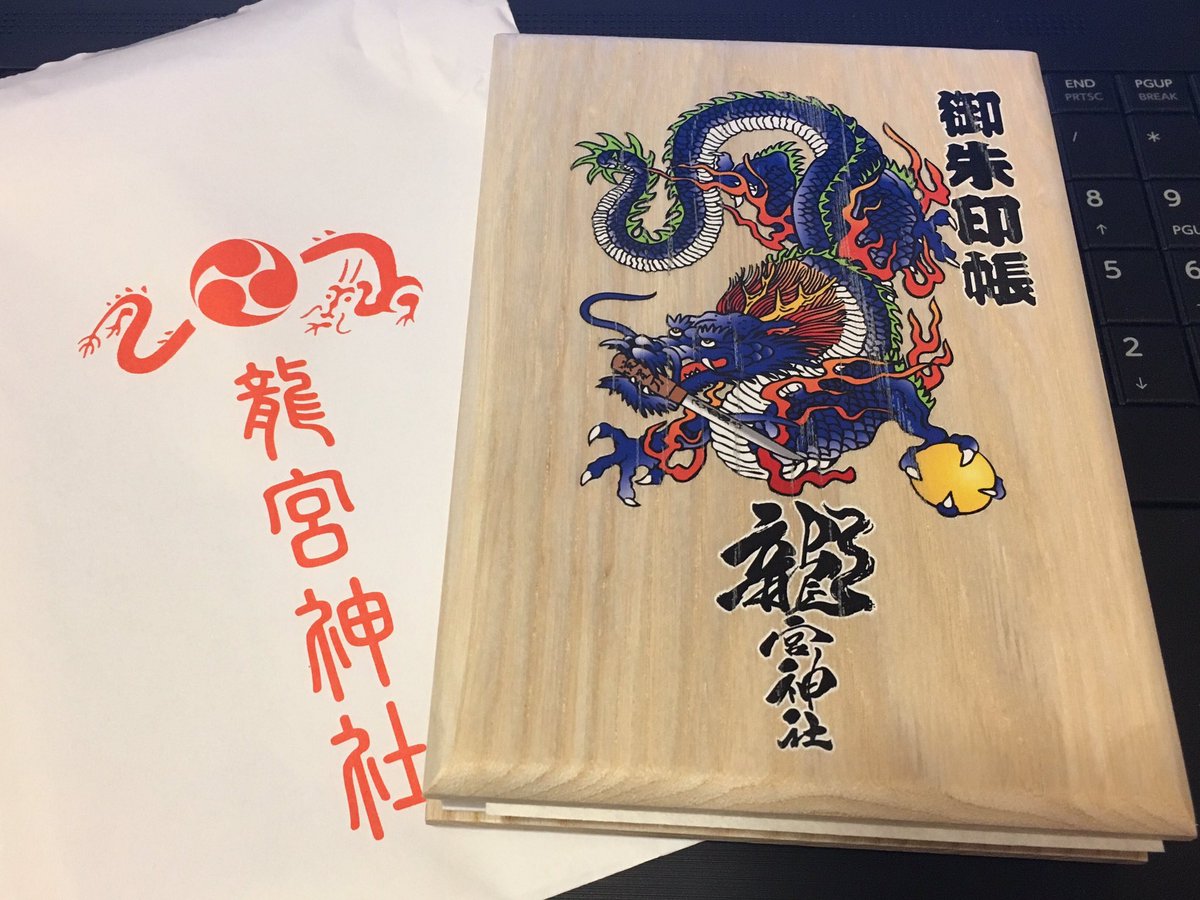 龍宮神社
御朱印帳
龍宮神社
END
PRTSC
PGUP
BREAK
/
*
8
↑
9
PGU
5
6
2
↓